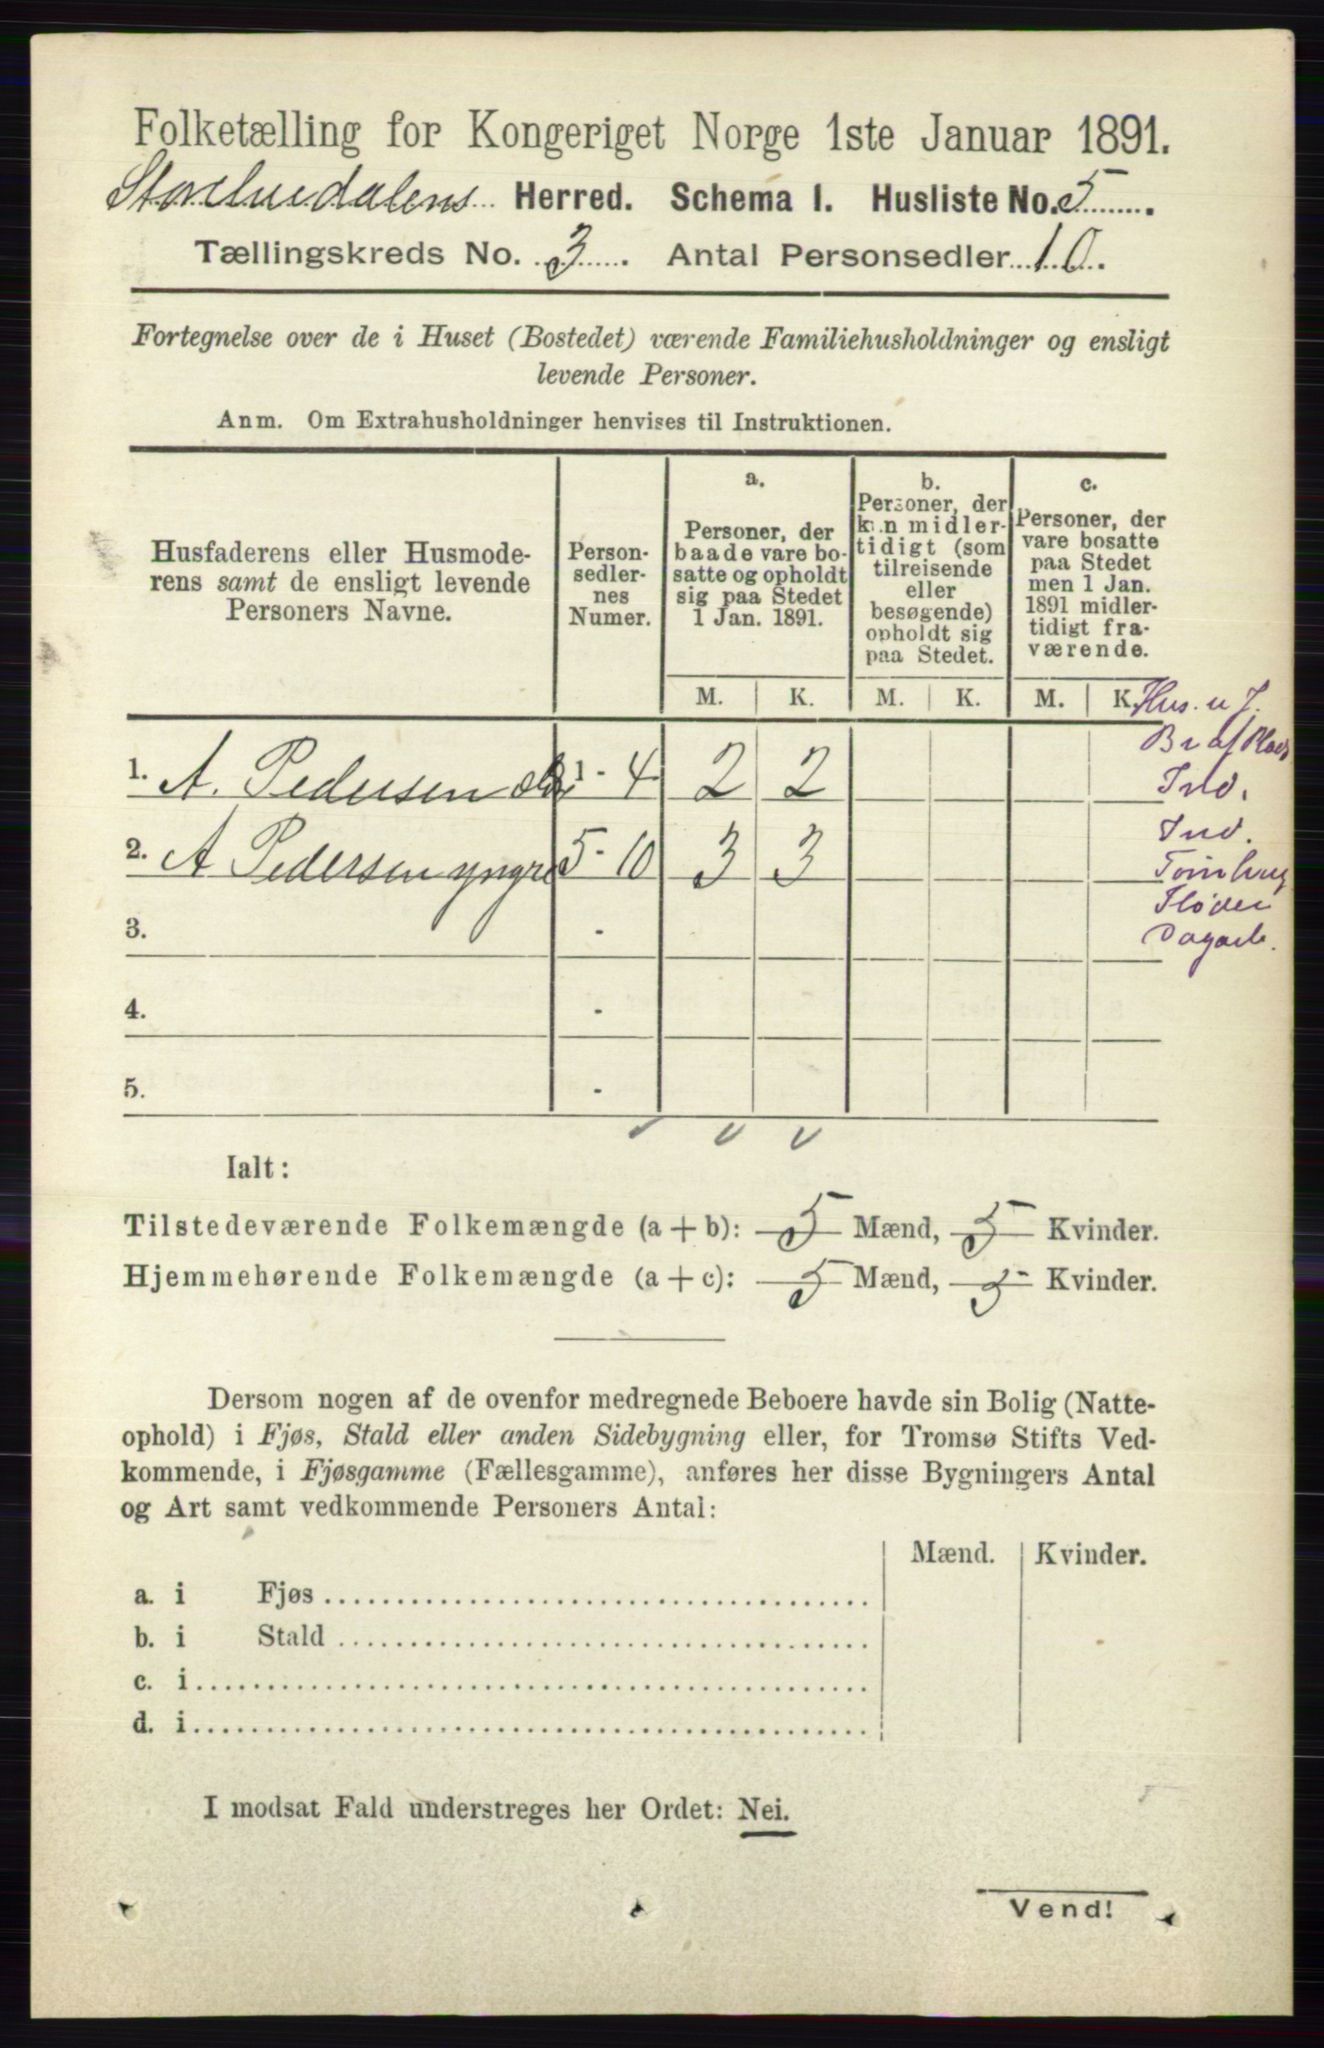 Folketælling for Kongeriget Norge 1ste Januar 1891.
Storelvedalens Herred. Schema I. Husliste No. 5
Tællingskreds No. 3. Antal Personsedler 10.
Fortegnelse over de i Huset (Bostedet) værende Familiehusholdninger og ensligt
levende Personer.
Anm. Om Extrahusholdninger henvises til Instruktionen.
Husfaderens eller Husmode-
rens samt de ensligt levende
Personers Navne.
Person-
sedler-
nes
Numer.
a.
Personer, der
baade vare bo-
satte og opholdt
sig paa Stedet
1 Jan. 1891.
b.
Personer, der
kun midler-
tidigt (som
tilreisende
eller
besøgende)
opholdt sig
paa Stedet.
c.
Personer, der
vare bosatte
paa Stedet
men 1 Jan.
1891 midler-
tidigt fra-
værende.
M. K. M. K. M. K.
Hus. u J.
Br af Plads
1. A. Pedersen 1 - 4 2 2
Ind.
Ind.
2. A Pedersen yngre 5 - 10 3 3
Fløder
3. -
Dagarb.
4. -
5. -
Ialt:
Tilstedeværende Folkemængde (a + b): 5 Mænd, 5 Kvinder.
Hjemmehørende Folkemængde (a + c): 5 Mænd, 5 Kvinder.
Dersom nogen af de ovenfor medregnede Beboere havde sin Bolig (Natte-
ophold) i Fjøs, Stald eller anden Sidebygning eller, for Tromsø Stifts Ved-
kommende, i Fjøsgamme (Fællesgamme), anføres her disse Bygningers Antal
og Art samt vedkommende Personers Antal:
Mænd. Kvinder.
a. i Fjøs
b. i Stald
c. i
d. i
I modsat Fald understreges her Ordet: Nei.
Vend!